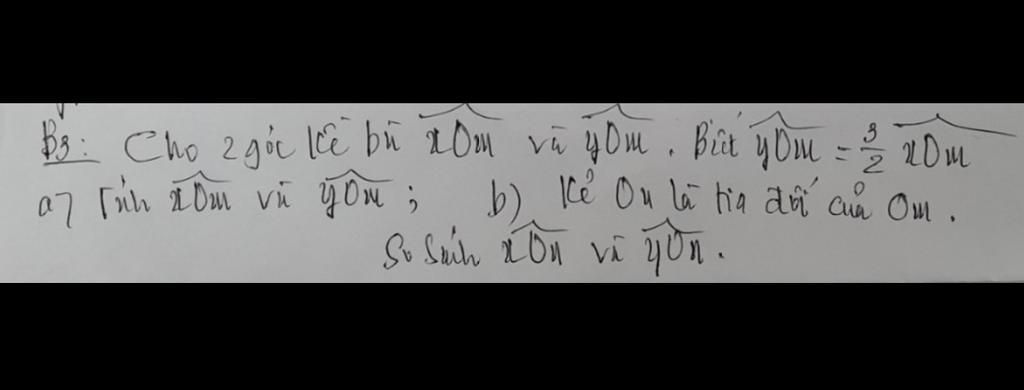 B3: Cho 2 góc kề bù xOm và yOm. Biết yOm = 3/2 xOm
a) Tính xOm và yOm; b) Kẻ On là tia đối của Om.
So sánh xOn và yOn.